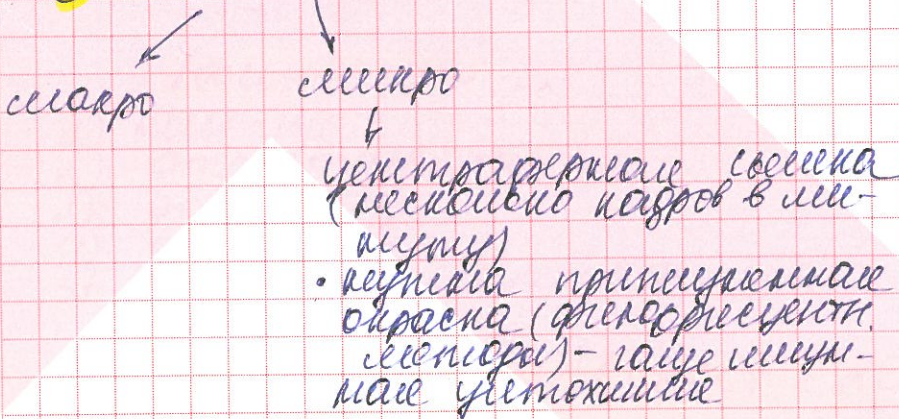 макро
микро
цейтраферная съемка
(несколько кадров в ми-
нуту)
• нужна прижизненная
окраска (флюоресцентн.
методы) – чаще иммун-
ная цитохимия